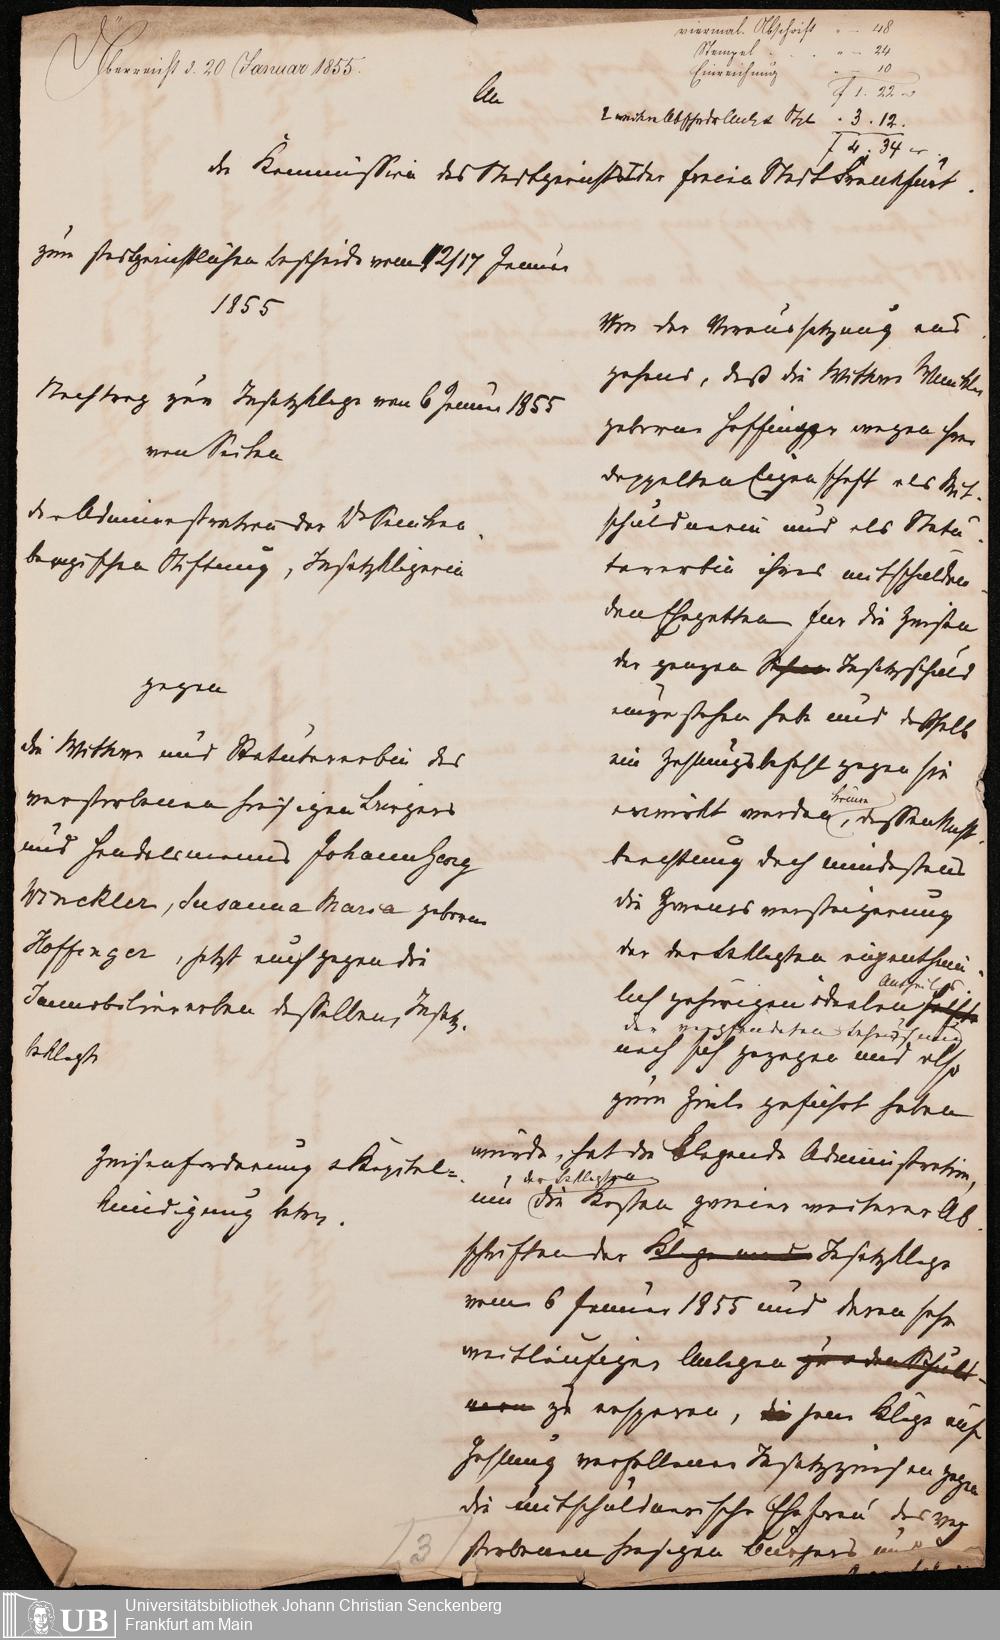 Überreicht d. 20 Januar 1855.
viermal. Abschrift " – 48
Stempel " – 24
Einreichung " – 10
f 1. 22
2 weitere Abschr. d. Anlg. u Stpl . 3 . 12.
f 4. 34
An
die Kommission des Stadtgerichts I der freien Stadt Frankfurt.
zum stadtgerichtlichen Bescheide vom 12/17 Januar
1855
Nachtrag zur Insatzklage vom 6 Januar 1855
von Seiten
der Administration der Dr Sencken
bergischen Stiftung, Insatzklägerin
gegen
die Wittwe und Statutarerbin des
verstorbenen hiesigen Bürgers
und Handelsmanns Johann Georg
Winckler, Susanna Maria geborne
Hoffinger, jetzt auch gegen die
Immobiliarerben desselben, Insatz-
beklagte
Zinsenforderung u Kapital=
kündigung betr.
Von der Voraussetzung aus
gehend, daß die Wittwe Winckler
geborene Hoffinger wegen ihrer
doppelten Eigenschaft als Mit-
schuldnerin und als Statu-
tarerbin ihres mitschulden-
den Ehegatten für die Zinsen
der ganzen Insatzschuld
einzustehen habe und deshalb
ein Zahlungsbefehl gegen sie
erwirkt werden könne, dessen Nicht-
beachtung doch mindestens
die Zwangsversteigerung
der der Beklagten eigenthüm-
lich gehörigen idealen Antheils
der verpfändeten Behausung
nach sich gezogen und also
zum Ziele geführt haben
würde, hat die klagende Administration,
um der Beklagten die Kosten zweier weiterer Ab-
schriften der Insatzklage
vom 6 Januar 1855 und deren sehr
weitläufigen Anlagen
zu ersparen, jene Klage auf
Zahlung verfallener Insatzzinsen gegen
die mitschuldnerische Ehefrau des ver
storbenen hiesigen Bürgers und
3
UB
Universitätsbibliothek Johann Christian Senckenberg
Frankfurt am Main